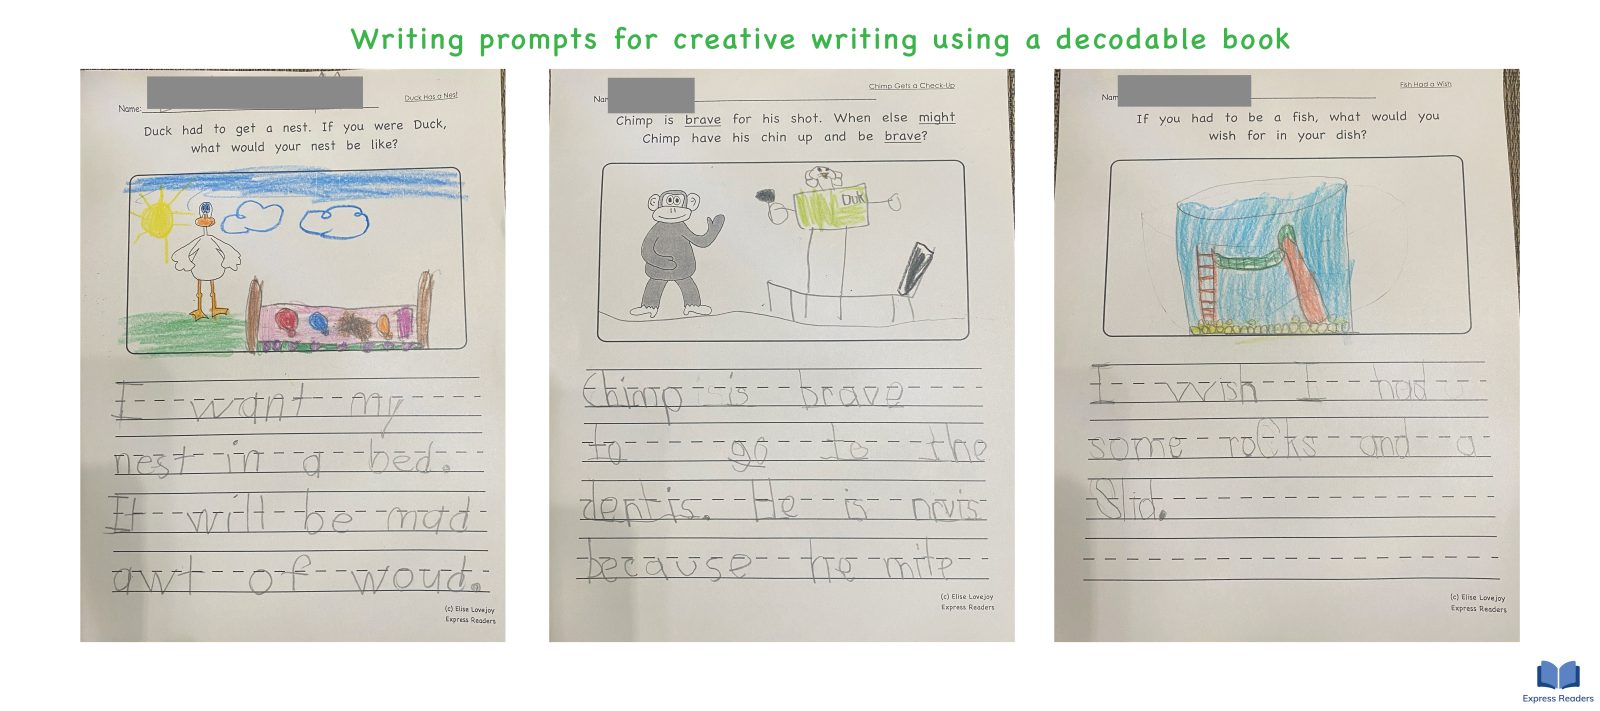 Writing prompts for creative writing using a decodable book
Duck Has a Nest
Name:
Duck had to get a nest. If you were Duck,
what would your nest be like?
I want my
nest in a bed.
It will be mad
awt of woud.
(c) Elise Lovejoy
Express Readers
Chimp Gets a Check-Up
Nam
Chimp is brave for his shot. When else might
Chimp have his chin up and be brave?
Duk
Chimp is brave
to go to the
dentis. He is nrvis
because he mite
(c) Elise Lovejoy
Express Readers
Fish Had a Wish
Nam
If you had to be a fish, what would you
wish for in your dish?
I wish I had
some rocks and a
Slid.
(c) Elise Lovejoy
Express Readers
Express Readers